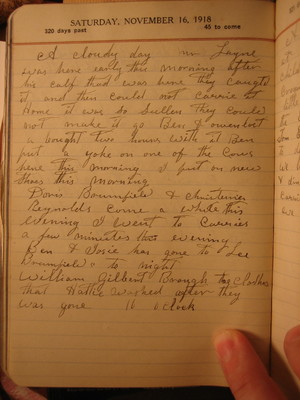 SATURDAY, NOVEMBER 16, 1918
320 days past 45 to come
A Cloudy day Mr Layne
was here early this morning after
his calf that was here they caught
it and then could not carrie it
Home it was so Sullen they could
not make it go Ben &
a bought two hours with it Ben
put a yoke on one of the Cows
here this morning I put on new
shoes this morning
Dove Brumfield & Christenia
Reynolds come a while this
evening I went to Carries
a few minutes this evening
Ben & Josie has gone to Lee
Brumfields to night
William Gilbert Brough Clothes
that Hattie washed after they
was gone 11 oclock